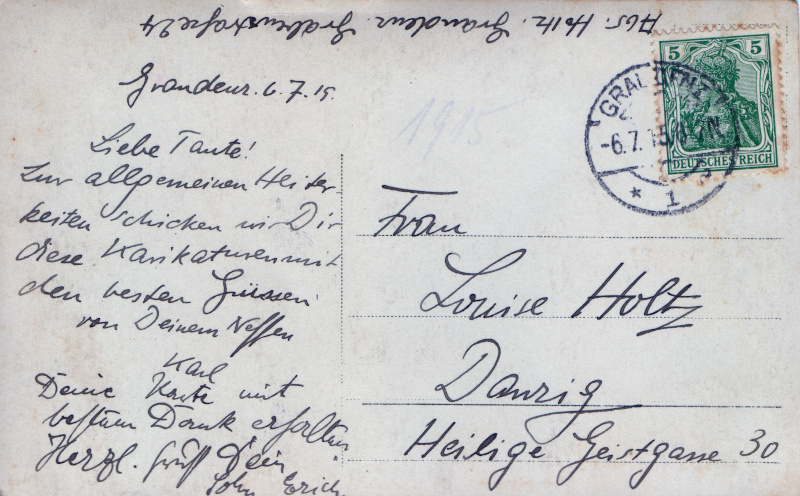 Abs. Holtz. Graudenz. Grabenstraße 24
Graudenz. 6.7.15.
1915
Liebe Tante!
Zur allgemeinen Heiter-
keiten schicken wir Dir
diese Karikaturen mit
den besten Grüssen
von Deinem Neffen
Karl
Deine Karte mit
bestem Dank erhalten
Herzl. Gruß Dein
Sohn Erich
5 5
DEUTSCHES REICH
GRAUDENZ
-6.7.15
* 1
Frau
Louise Holtz
Danzig
Heilige Geistgasse 30